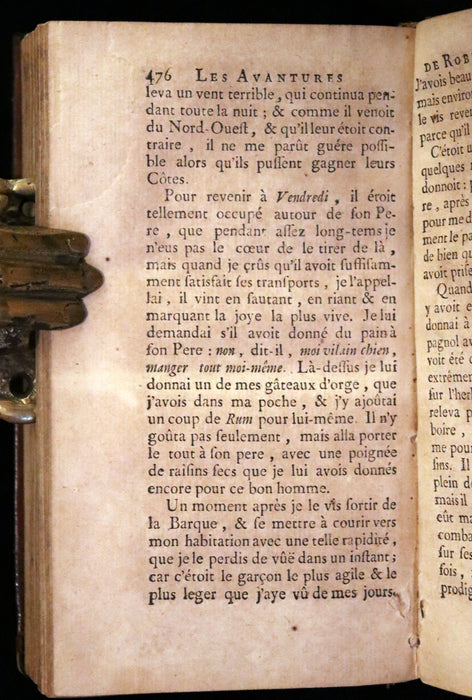 476 LES AVANTURES
leva un vent terrible, qui continua pen-
dant toute la nuit ; & comme il venoit
du Nord-Ouest, & qu'il leur étoit con-
traire , il ne me parût guére possi-
ble alors qu'ils pussent gagner leurs
Côtes.
Pour revenir à Vendredi , il étoit
tellement occupé autour de son Pe-
re , que pendant assez long-tems je
n'eus pas le cœur de le tirer de là ,
mais quand je crûs qu'il avoit suffisam-
ment satisfait ses transports , je l'appel-
lai , il vint en sautant , en riant & en
marquant la joye la plus vive. Je lui
demandai s'il avoit donné du pain à
son Pere : non, dit-il , moi vilain chien,
manger tout moi-même. Là-dessus je lui
donnai un de mes gâteaux d'orge , que
j'avois dans ma poche , & j'y ajoûtai
un coup de Rum pour lui-même. Il n'y
goûta pas seulement , mais alla porter
le tout à son pere , avec une poignée
de raisins secs que je lui avois donnés
encore pour ce bon homme.
Un moment après je le vis sortir de
la Barque , & se mettre à courir vers
mon habitation avec une telle rapidité,
que je le perdis de vûë dans un instant;
car c'étoit le garçon le plus agile & le
plus leger que j'aye vû de mes jours.
DE ROB
J'avois beau
mais environ
le vis reven
parce qu'il
C'étoit u
quelques
donnoit :
re , après
pour me d
ment le pa
de bien qu
avoit prise
Quand
y avoit e
donnai à
pagnol av
voit été
extrémem
sur l'herb
releva p
boire ,
me pour
sins. Il
plein de
mais il
eût ma
comba
sur ses
fois ,
prodig